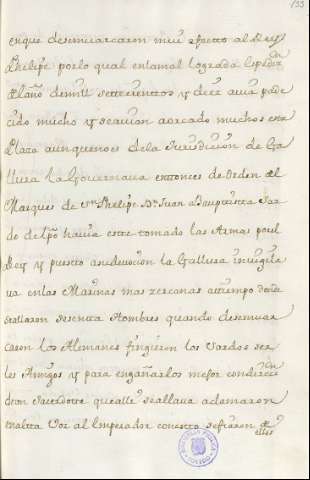 133
en que desenvarcaron muy afecto al Rey
Phelipe por lo qual en la mal lograda Espedicion
del año de mill settecientos y diez avia pade-
cido mucho y se avian aorcado muchos en la
Plaza aunque no es de la Jurisdicion de Ga-
llura la Governava entonces de orden del
Marques de Sn Phelipe Dn Juan Bauptista
havia este tomado las Armas por el
Rey y puesto a su devocion la Gallura
va en las Marinas mas zercanas a tiempo donde
se allaron sesenta Hombres quando desemvar-
caron los Alemanes fingieron los Sardos ser
les Amigos y para engañarlos mejor con direcion
de un Sacerdote que alli se allava aclamaron
en alta Voz al Emperador con esto se fiaron de
ellos